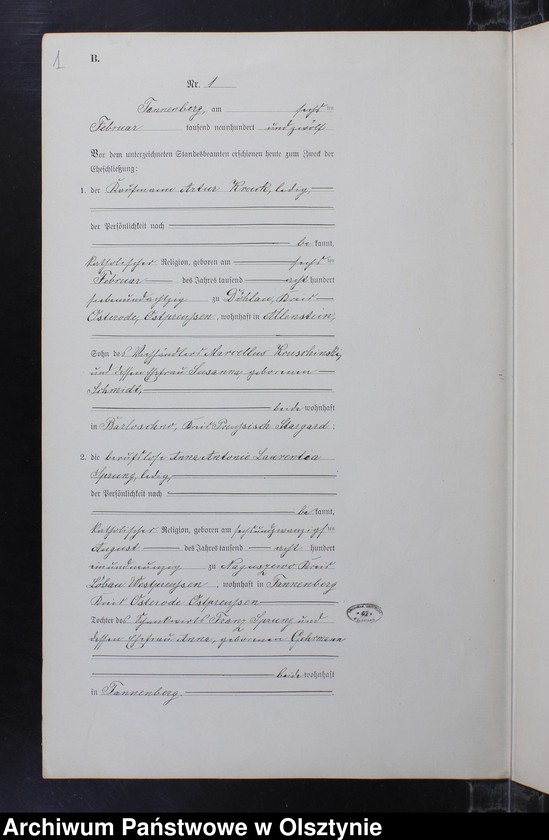 1
B.
Nr. 1
Tannenberg, am sechsten
Februar tausend neunhundert und zwölf
Vor dem unterzeichneten Standesbeamten erschienen heute zum Zweck der
Eheschließung:
1. der Kaufmann Artur Kruck, ledig,
der Persönlichkeit nach
be kannt,
katholischer Religion, geboren am sechsten
Februar des Jahres tausend acht hundert
siebenundachtzig zu Döhlau, Kreis
Osterode, Ostpreussen, wohnhaft in Allenstein,
Sohn des Viehhändlers Marcellus Konschinsky
und dessen Ehefrau Susanna geborenen
Schmidt,
beide wohnhaft
in Barloschno, Kreis Preußisch Stargard;
2. die berufslose Anna Antonie Laurentea
Sprung, ledig,
der Persönlichkeit nach
be kannt,
katholischer Religion, geboren am sechsundzwanzigsten
August des Jahres tausend acht hundert
einundneunzig zu Naguszewo Kreis
Löbau Westpreussen, wohnhaft in Tannenberg
Kreis Osterode Ostpreussen
Tochter des Schankwirts Franz Sprung und
dessen Ehefrau Anna, geborenen Gehrmann
beide wohnhaft
in Tannenberg.
42
Archiwum Państwowe w Olsztynie